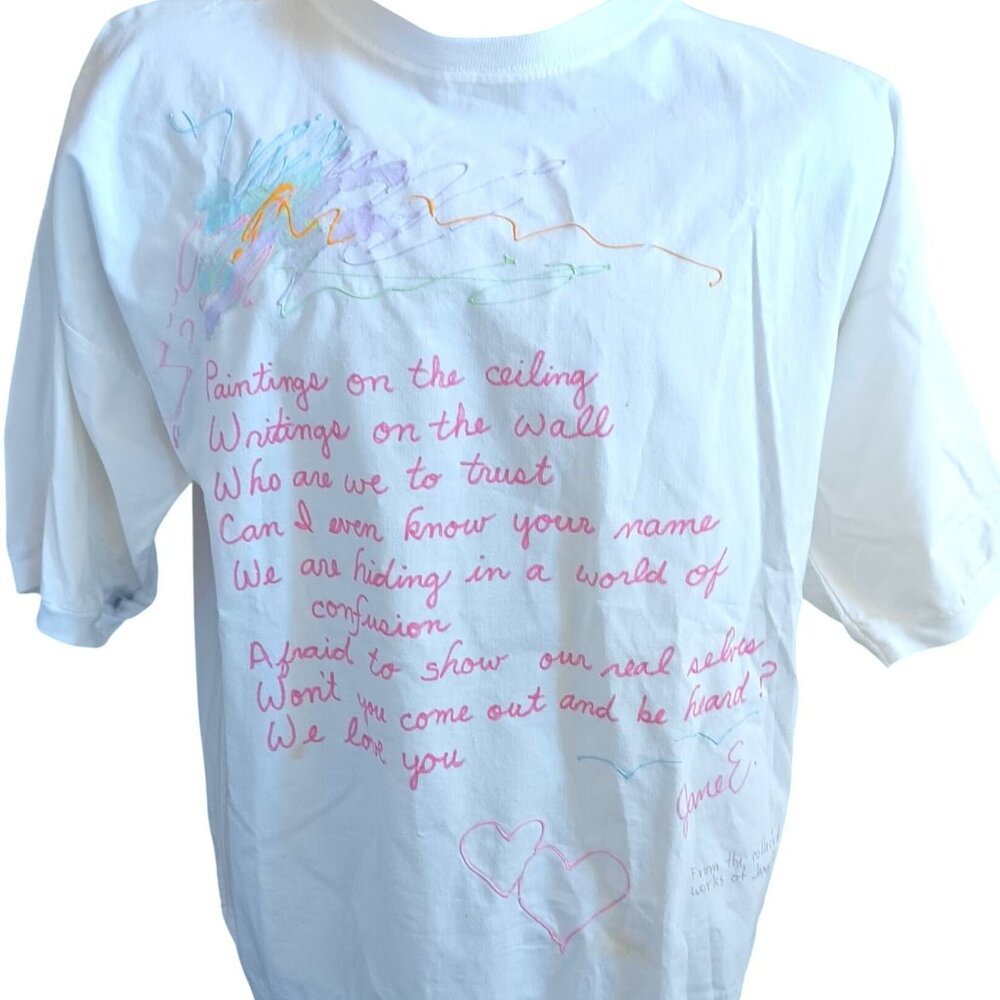 Paintings on the ceiling
Writings on the wall
Who are we to trust
Can I even know your name
We are hiding in a world of
confusion
Afraid to show our real selves
Won't you come out and be heard?
We love you
Jane E.
From the
works of